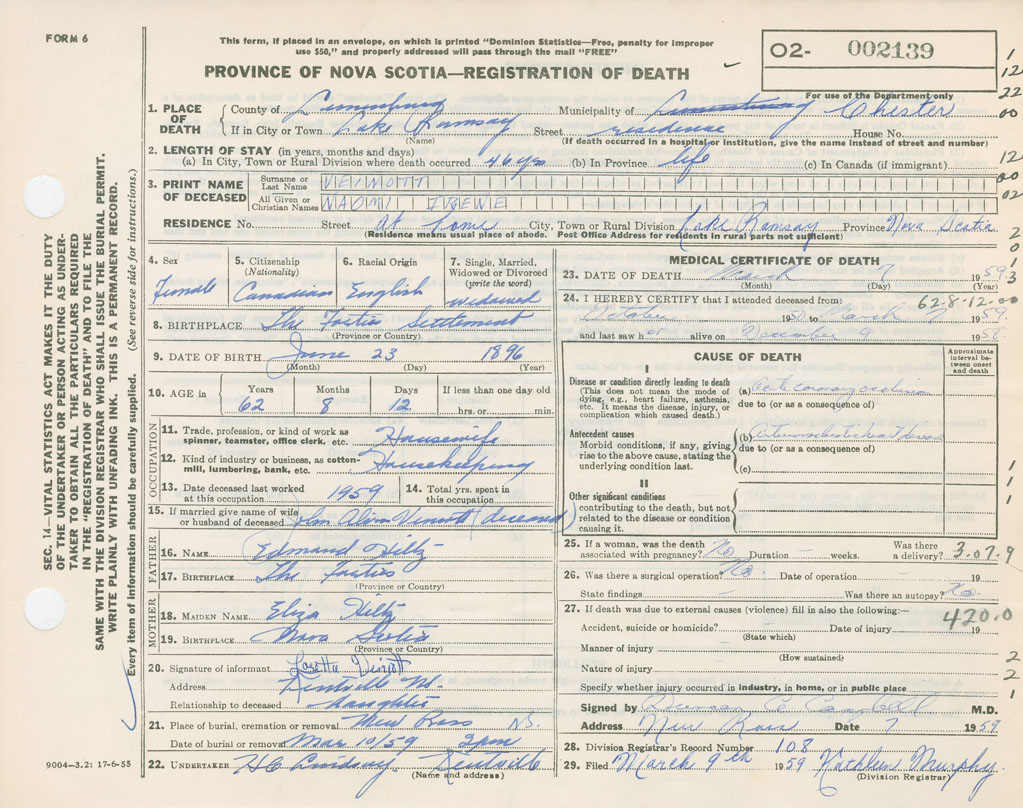 FORM 6
This form, if placed in an envelope, on which is printed "Dominion Statistics—Free, penalty for improper
use $50," and properly addressed will pass through the mail "FREE"
PROVINCE OF NOVA SCOTIA—REGISTRATION OF DEATH
O2- 002139
For use of the Department only
1
12
22
00
12
00
02
2
0
1
3
1. PLACE OF DEATH County of Lunenburg Municipality of Lunenburg Chester
If in City or Town Lake Ramsay Street residence House No.
(Name) (If death occurred in a hospital or institution, give the name instead of street and number)
2. LENGTH OF STAY (in years, months and days)
(a) In City, Town or Rural Division where death occurred 46 yrs (b) In Province life (c) In Canada (if immigrant)
3. PRINT NAME OF DECEASED Surname or Last Name VEINOTT
All Given or Christian Names NAOMI IRENE
RESIDENCE No. Street At home City, Town or Rural Division Lake Ramsay Province Nova Scotia
(Residence means usual place of abode. Post Office Address for residents in rural parts not sufficient)
4. Sex Female
5. Citizenship (Nationality) Canadian
6. Racial Origin English
7. Single, Married, Widowed or Divorced (write the word) widowed
8. BIRTHPLACE The Forties Settlement
(Province or Country)
9. DATE OF BIRTH June 23 1896
(Month) (Day) (Year)
10. AGE in Years 62 Months 8 Days 12 If less than one day old hrs. or min.
OCCUPATION
11. Trade, profession, or kind of work as spinner, teamster, office clerk, etc. Housewife
12. Kind of industry or business, as cotton-mill, lumbering, bank, etc. Housekeeping
13. Date deceased last worked at this occupation 1959 14. Total yrs. spent in this occupation
15. If married give name of wife or husband of deceased John Veinott (deceased)
FATHER
16. NAME Edmund Hiltz
17. BIRTHPLACE The Forties
(Province or Country)
MOTHER
18. MAIDEN NAME Eliza Hiltz
19. BIRTHPLACE Nova Scotia
(Province or Country)
20. Signature of informant Loretta Veinott
Address Kentville NS.
Relationship to deceased daughter
21. Place of burial, cremation or removal New Ross NS.
Date of burial or removal Mar 10/59 2pm
22. UNDERTAKER H C Lindsay Kentville
(Name and address)
9004—3.2: 17-6-55
MEDICAL CERTIFICATE OF DEATH
23. DATE OF DEATH March 7 1959
(Month) (Day)
62-8-12-00
24. I HEREBY CERTIFY that I attended deceased from:
October 1950 to March 7 1959.
and last saw h er alive on December 9 1958.
CAUSE OF DEATH
Approximate interval between onset and death
I
Disease or condition directly leading to death
(This does not mean the mode of dying, e.g., heart failure, asthenia, etc. It means the disease, injury, or complication which caused death.)
(a) Acute coronary occlusion
due to (or as a consequence of)
Antecedent causes
Morbid conditions, if any, giving rise to the above cause, stating the underlying condition last.
(b) heart disease
due to (or as a consequence of)
(c)
II
Other significant conditions
contributing to the death, but not related to the disease or condition causing it.
1
1
1
25. If a woman, was the death associated with pregnancy? No Duration weeks. Was there a delivery?
3.07.9
26. Was there a surgical operation? No. Date of operation — 19
State findings — Was there an autopsy? No.
27. If death was due to external causes (violence) fill in also the following:—
420.0
Accident, suicide or homicide? Date of injury 19
(State which)
Manner of injury
(How sustained)
Nature of injury
Specify whether injury occurred in industry, in home, or in public place
2
2
1
Signed by C. Campbell M.D.
Address New Ross Date 7 1959
28. Division Registrar's Record Number 108
29. Filed March 9th 1959 Kathleen Murphy
(Division Registrar)
SEC. 14—VITAL STATISTICS ACT MAKES IT THE DUTY
OF THE UNDERTAKER OR PERSON ACTING AS UNDER-
TAKER TO OBTAIN ALL THE PARTICULARS REQUIRED
IN THE "REGISTRATION OF DEATH" AND TO FILE THE
SAME WITH THE DIVISION REGISTRAR WHO SHALL ISSUE THE BURIAL PERMIT.
WRITE PLAINLY WITH UNFADING INK. THIS IS A PERMANENT RECORD.
Every item of information should be carefully supplied. (See reverse side for instructions.)